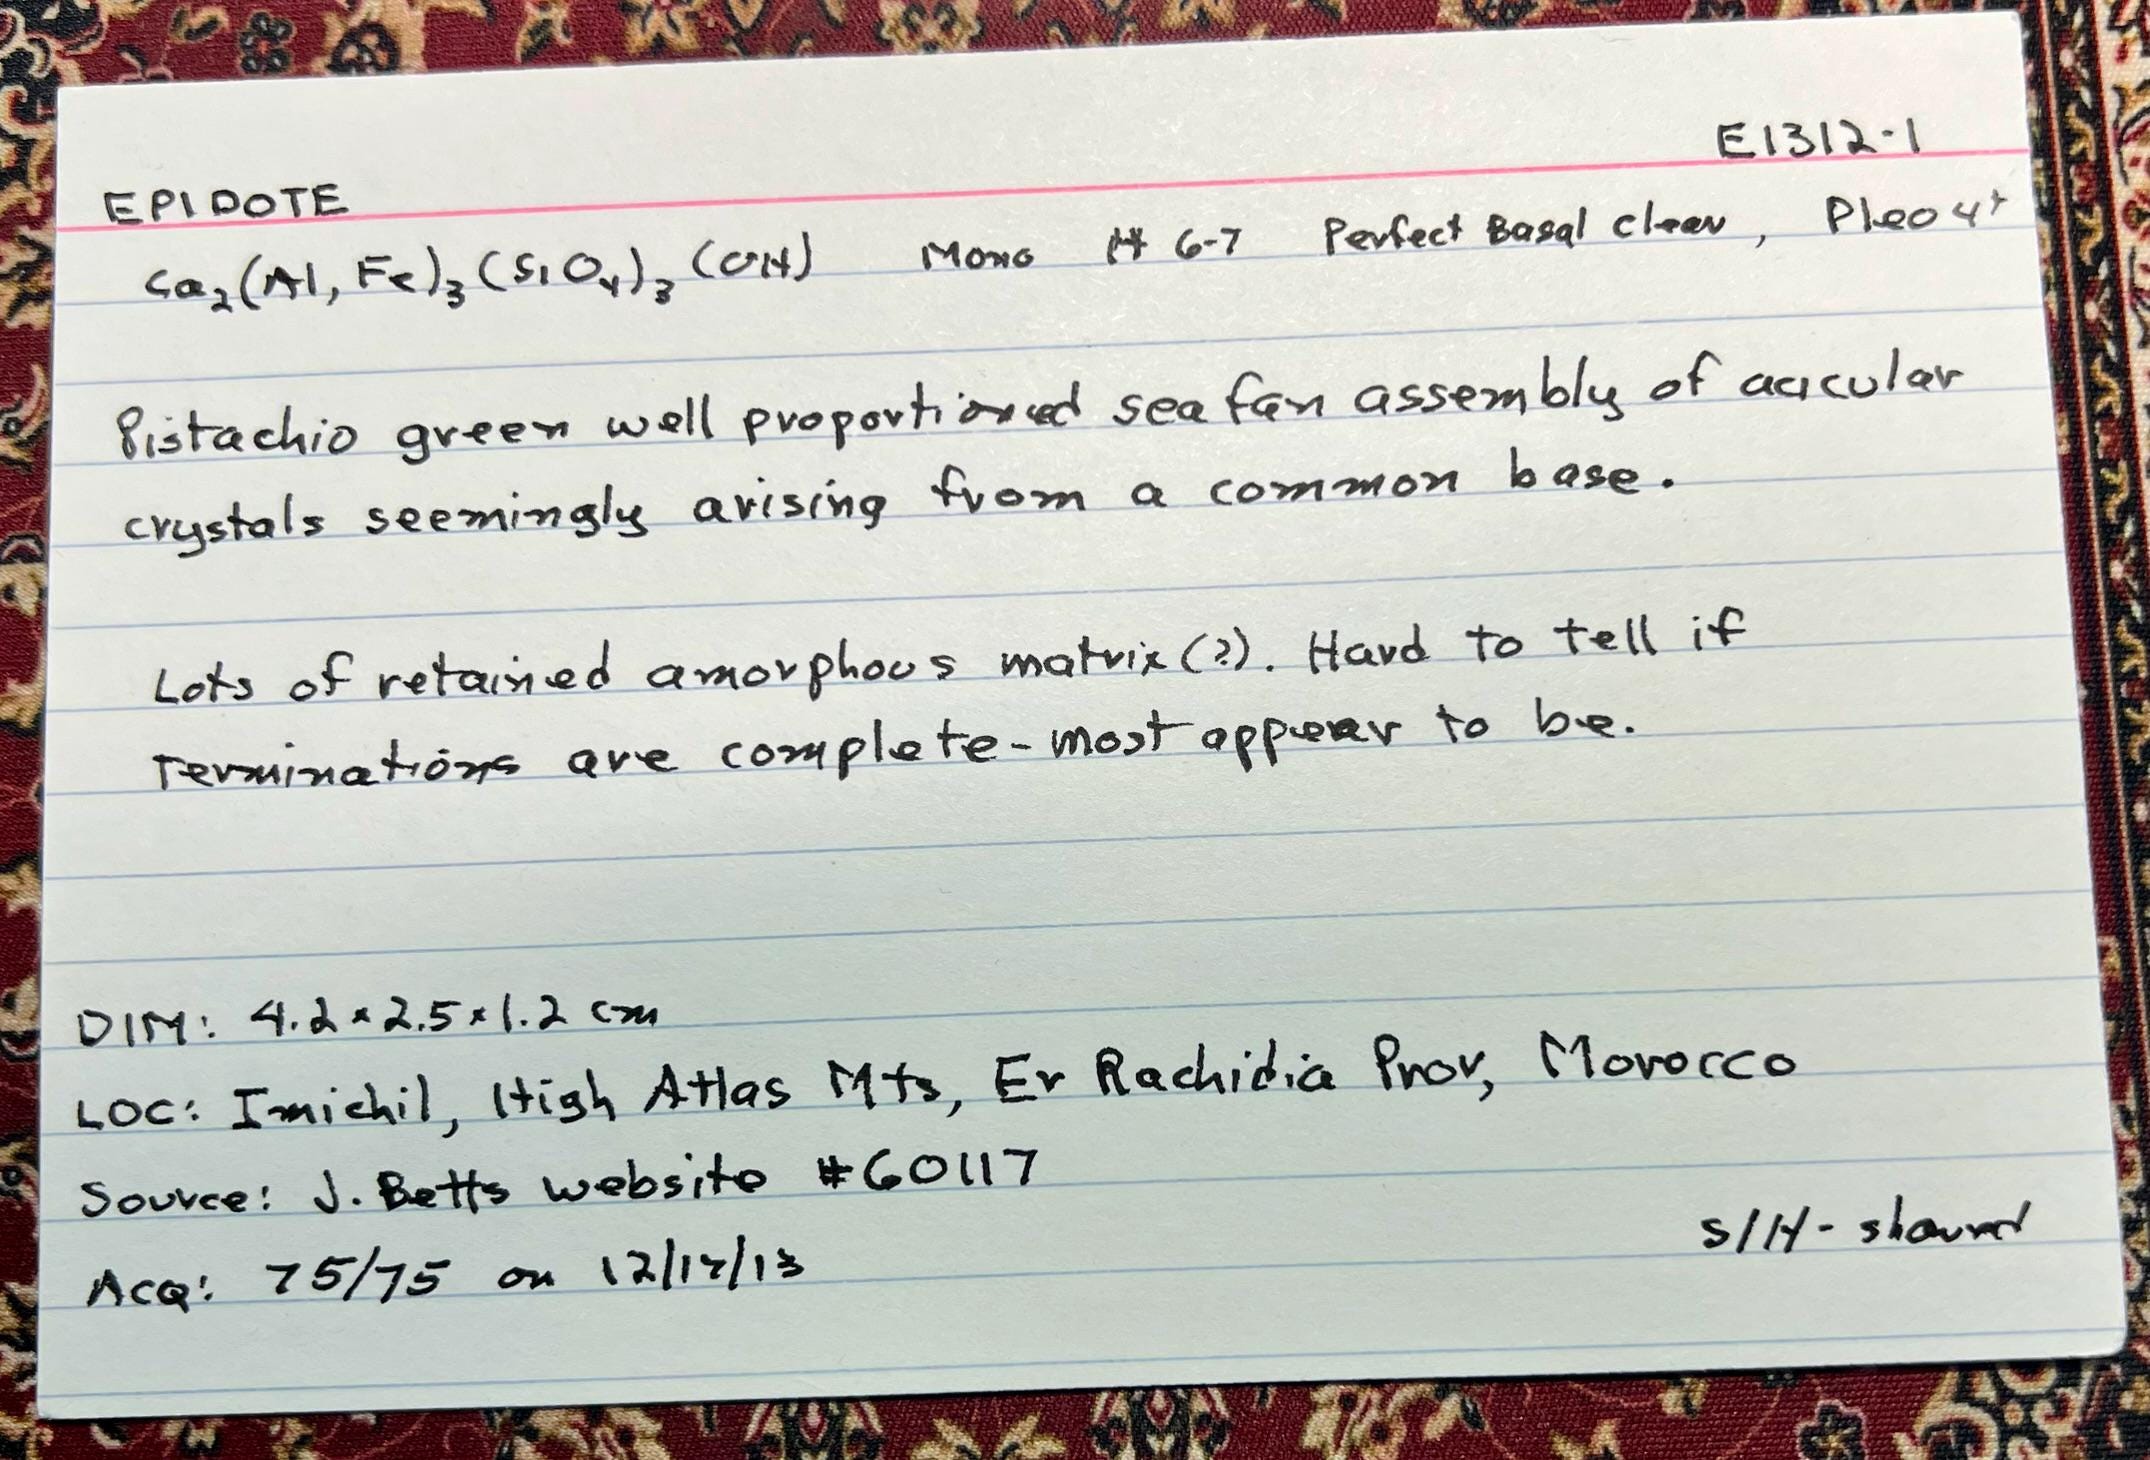 E1312-1
EPIDOTE
Ca₂(Al, Fe)₃(SiO₄)₃(OH) Mono H 6-7 Perfect Basal cleav, Pleo 4+
Pistachio green well proportioned sea fan assembly of acicular
crystals seemingly arising from a common base.
Lots of retained amorphous matrix(?). Hard to tell if
Terminations are complete - most appear to be.
DIM: 4.2 x 2.5 x 1.2 cm
LOC: Imichil, High Atlas Mts, Er Rachidia Prov, Morocco
Source: J. Betts website #60117
S/H - shared
Acq: 75/75 on